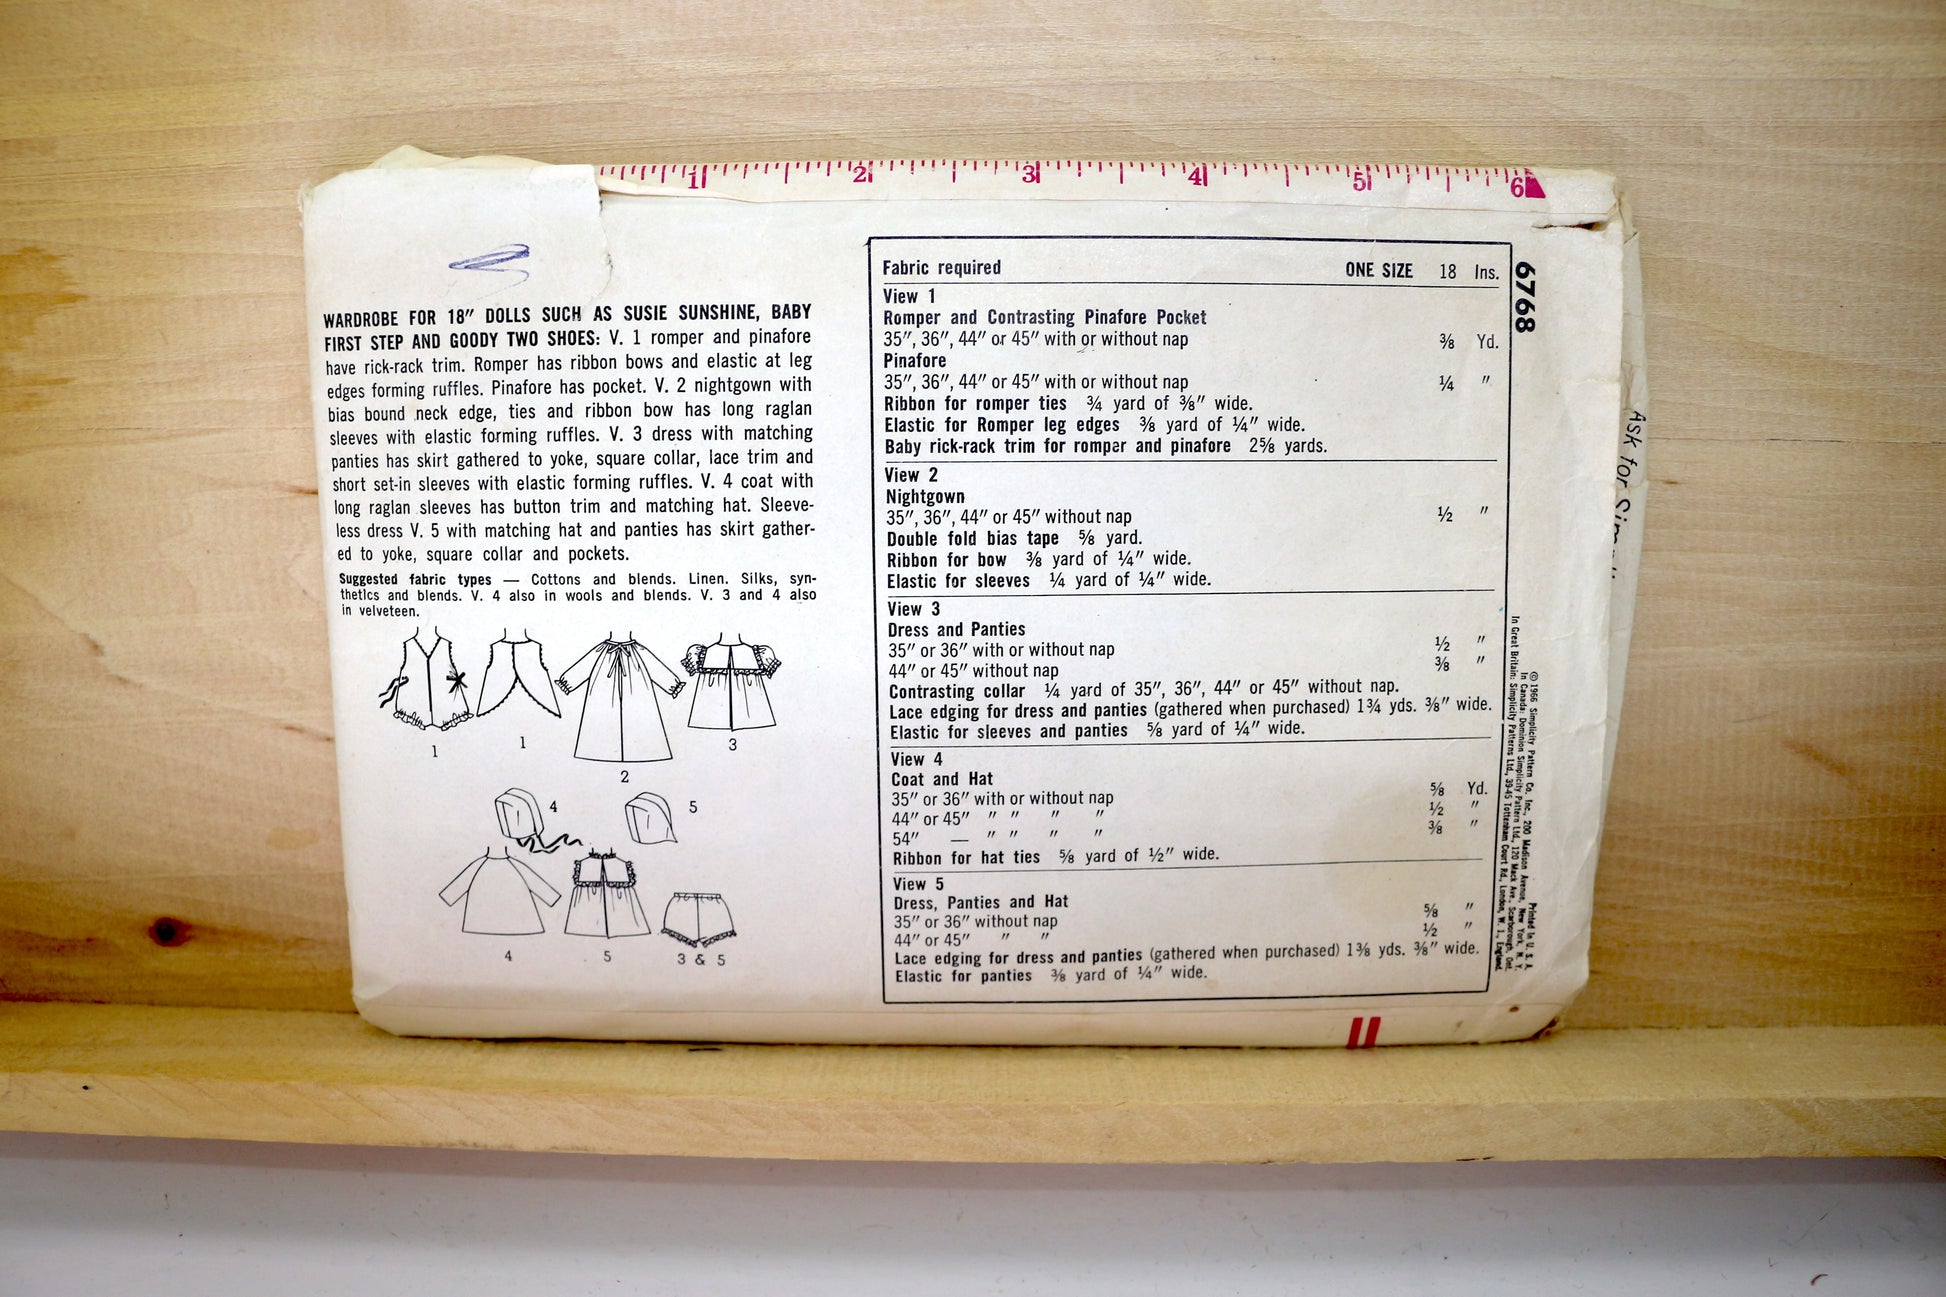 1 2 3 4 5 6
WARDROBE FOR 18" DOLLS SUCH AS SUSIE SUNSHINE, BABY
FIRST STEP AND GOODY TWO SHOES: V. 1 romper and pinafore
have rick-rack trim. Romper has ribbon bows and elastic at leg
edges forming ruffles. Pinafore has pocket. V. 2 nightgown with
bias bound neck edge, ties and ribbon bow has long raglan
sleeves with elastic forming ruffles. V. 3 dress with matching
panties has skirt gathered to yoke, square collar, lace trim and
short set-in sleeves with elastic forming ruffles. V. 4 coat with
long raglan sleeves has button trim and matching hat. Sleeve-
less dress V. 5 with matching hat and panties has skirt gather-
ed to yoke, square collar and pockets.
Suggested fabric types — Cottons and blends. Linen. Silks, syn-
thetics and blends. V. 4 also in wools and blends. V. 3 and 4 also
in velveteen.
1
1
2
3
4
5
4
5
3 & 5
Fabric required ONE SIZE 18 Ins.
View 1
Romper and Contrasting Pinafore Pocket
35", 36", 44" or 45" with or without nap ⅜ Yd.
Pinafore
35", 36", 44" or 45" with or without nap ¼ "
Ribbon for romper ties ¾ yard of ⅜" wide.
Elastic for Romper leg edges ⅜ yard of ¼" wide.
Baby rick-rack trim for romper and pinafore 2⅝ yards.
View 2
Nightgown
35", 36", 44" or 45" without nap ½ "
Double fold bias tape ⅝ yard.
Ribbon for bow ⅜ yard of ¼" wide.
Elastic for sleeves ¼ yard of ¼" wide.
View 3
Dress and Panties
35" or 36" with or without nap ½ "
44" or 45" without nap ⅜ "
Contrasting collar ¼ yard of 35", 36", 44" or 45" without nap.
Lace edging for dress and panties (gathered when purchased) 1¾ yds. ⅜" wide.
Elastic for sleeves and panties ⅝ yard of ¼" wide.
View 4
Coat and Hat
35" or 36" with or without nap ⅝ Yd.
44" or 45" " " " " ½ "
54" — " " " " ⅜ "
Ribbon for hat ties ⅝ yard of ½" wide.
View 5
Dress, Panties and Hat
35" or 36" without nap ⅝ "
44" or 45" " " ½ "
Lace edging for dress and panties (gathered when purchased) 1⅜ yds. ⅜" wide.
Elastic for panties ⅜ yard of ¼" wide.
6768
© 1966 Simplicity Pattern Co. Inc., 200 Madison Avenue, New York, N. Y. Printed in U. S. A.
In Canada: Dominion Simplicity Pattern Ltd., 120 Mack Ave., Scarborough, Ont.
In Great Britain: Simplicity Patterns Ltd., 39-45 Tottenham Court Rd., London, W. 1., England.
Ask for